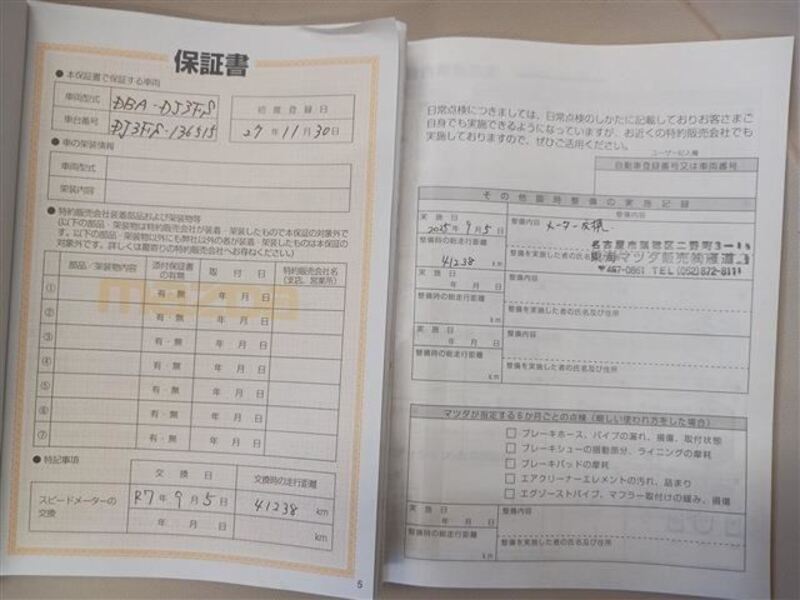 保証書
● 本保証書で保証する車両
車両型式 DBA-DJ3FS
車台番号 DJ3FS-136515
初度登録日
27年11月30日
● 車の架装情報
車両型式
架装内容
● 特約販売会社装着部品および架装物等
(以下の部品・架装物は特約販売会社が装着・架装したもので本保証の対象外です。以下の部品・架装物以外にも弊社以外の者が装着・架装したものは本保証の対象外です。詳しくは最寄りの特約販売会社へお尋ねください。)
部品/架装物内容 添付保証書の有無 取付日 特約販売会社名(支店、営業所)
① 有・無 年 月 日
② 有・無 年 月 日
③ 有・無 年 月 日
④ 有・無 年 月 日
⑤ 有・無 年 月 日
⑥ 有・無 年 月 日
⑦ 有・無 年 月 日
● 特記事項
交換日 交換時の走行距離
スピードメーターの交換
R7年9月5日 41238 km
年 月 日 km
5
日常点検につきましては、日常点検のしかたに記載しておりお客さまご
自身でも実施できるようになっていますが、お近くの特約販売会社でも
実施しておりますので、ぜひご活用ください。
ユーザー記入欄
自動車登録番号又は車両番号
その他臨時整備の実施記録
実施日
2025年9月5日
整備内容 メーター交換
整備時の総走行距離
41238 km
整備を実施した者の氏名及び住所
東海マツダ販売㈱
〒457-0861 TEL(052)872-8111
実施日
年 月 日
整備内容
整備時の総走行距離
km
整備を実施した者の氏名及び住所
実施日
年 月 日
整備内容
整備時の総走行距離
km
整備を実施した者の氏名及び住所
マツダが指定する6か月ごとの点検(厳しい使われ方をした場合)
□ ブレーキホース、パイプの漏れ、損傷、取付状態
□ ブレーキシューの摺動部分、ライニングの摩耗
□ ブレーキパッドの摩耗
□ エアクリーナーエレメントの汚れ、詰まり
□ エグゾーストパイプ、マフラー取付けの緩み、損傷
実施日
年 月 日
整備内容
整備時の総走行距離
km
整備を実施した者の氏名及び住所